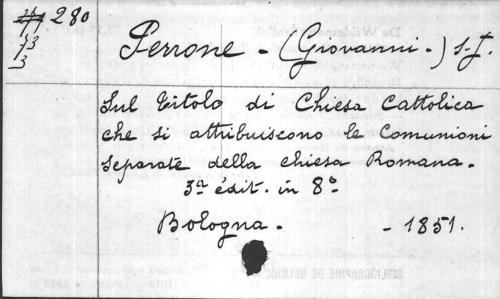 280
Perrone - (Giovanni -) S.J.
Sul titolo di Chiesa Cattolica
che si attribuiscono le Comunioni
separate della chiesa Romana.
3ª édit. in 8º
Bologna. - 1851.